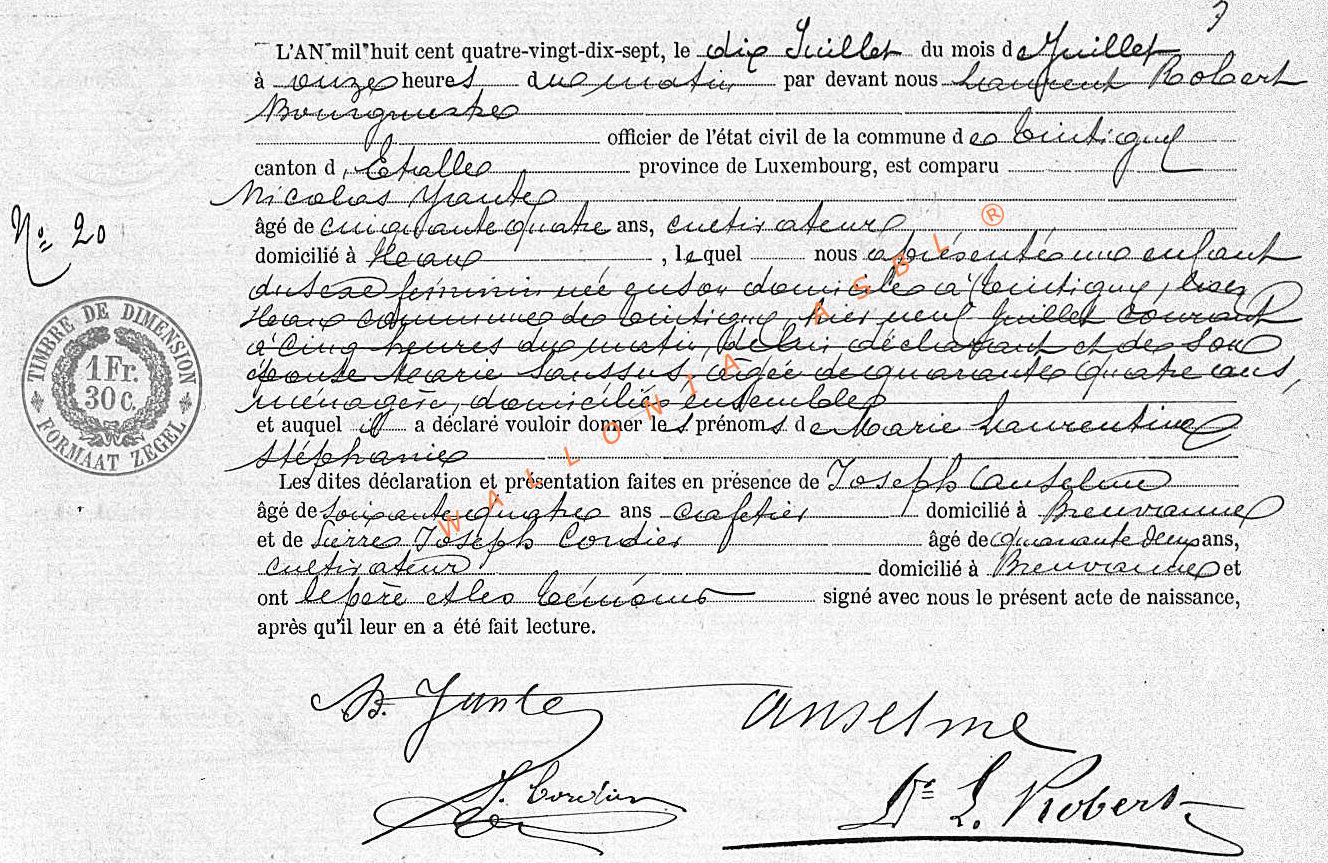 7
L'AN mil huit cent quatre-vingt-dix-sept, le dix Juillet du mois de Juillet
à onze heures du matin par devant nous Laurent Robert
Bourgmestre
officier de l'état civil de la commune de Tintigny
canton d'Etalle province de Luxembourg, est comparu
Nicolas Yante
âgé de cinquante quatre ans, cultivateur
domicilié à Han , lequel nous a présenté une enfant
du sexe féminin née en son domicile à Tintigny, lieu
commune de Tintigny, hier neuf Juillet courant
à cinq heures du matin, de lui déclarant et de son
épouse Marie Saussus, âgée de quarante quatre ans,
ménagère, domiciliés ensemble
et auquel il a déclaré vouloir donner les prénoms de Marie Laurentine
Stéphanie
Les dites déclaration et présentation faites en présence de Joseph Anselme
âgé de soixante quatre ans cafetier domicilié à Breuvanne
et de Pierre Joseph Cordier âgé de quarante deux ans,
cultivateur domicilié à Breuvanne et
ont le père et les témoins signé avec nous le présent acte de naissance,
après qu'il leur en a été fait lecture.
No 20
TIMBRE DE DIMENSION
1 Fr.
30 C.
FORMAAT ZEGEL
WALLONIA ASBL ®
Yante
Anselme
J. Cordier
Dr L. Robert